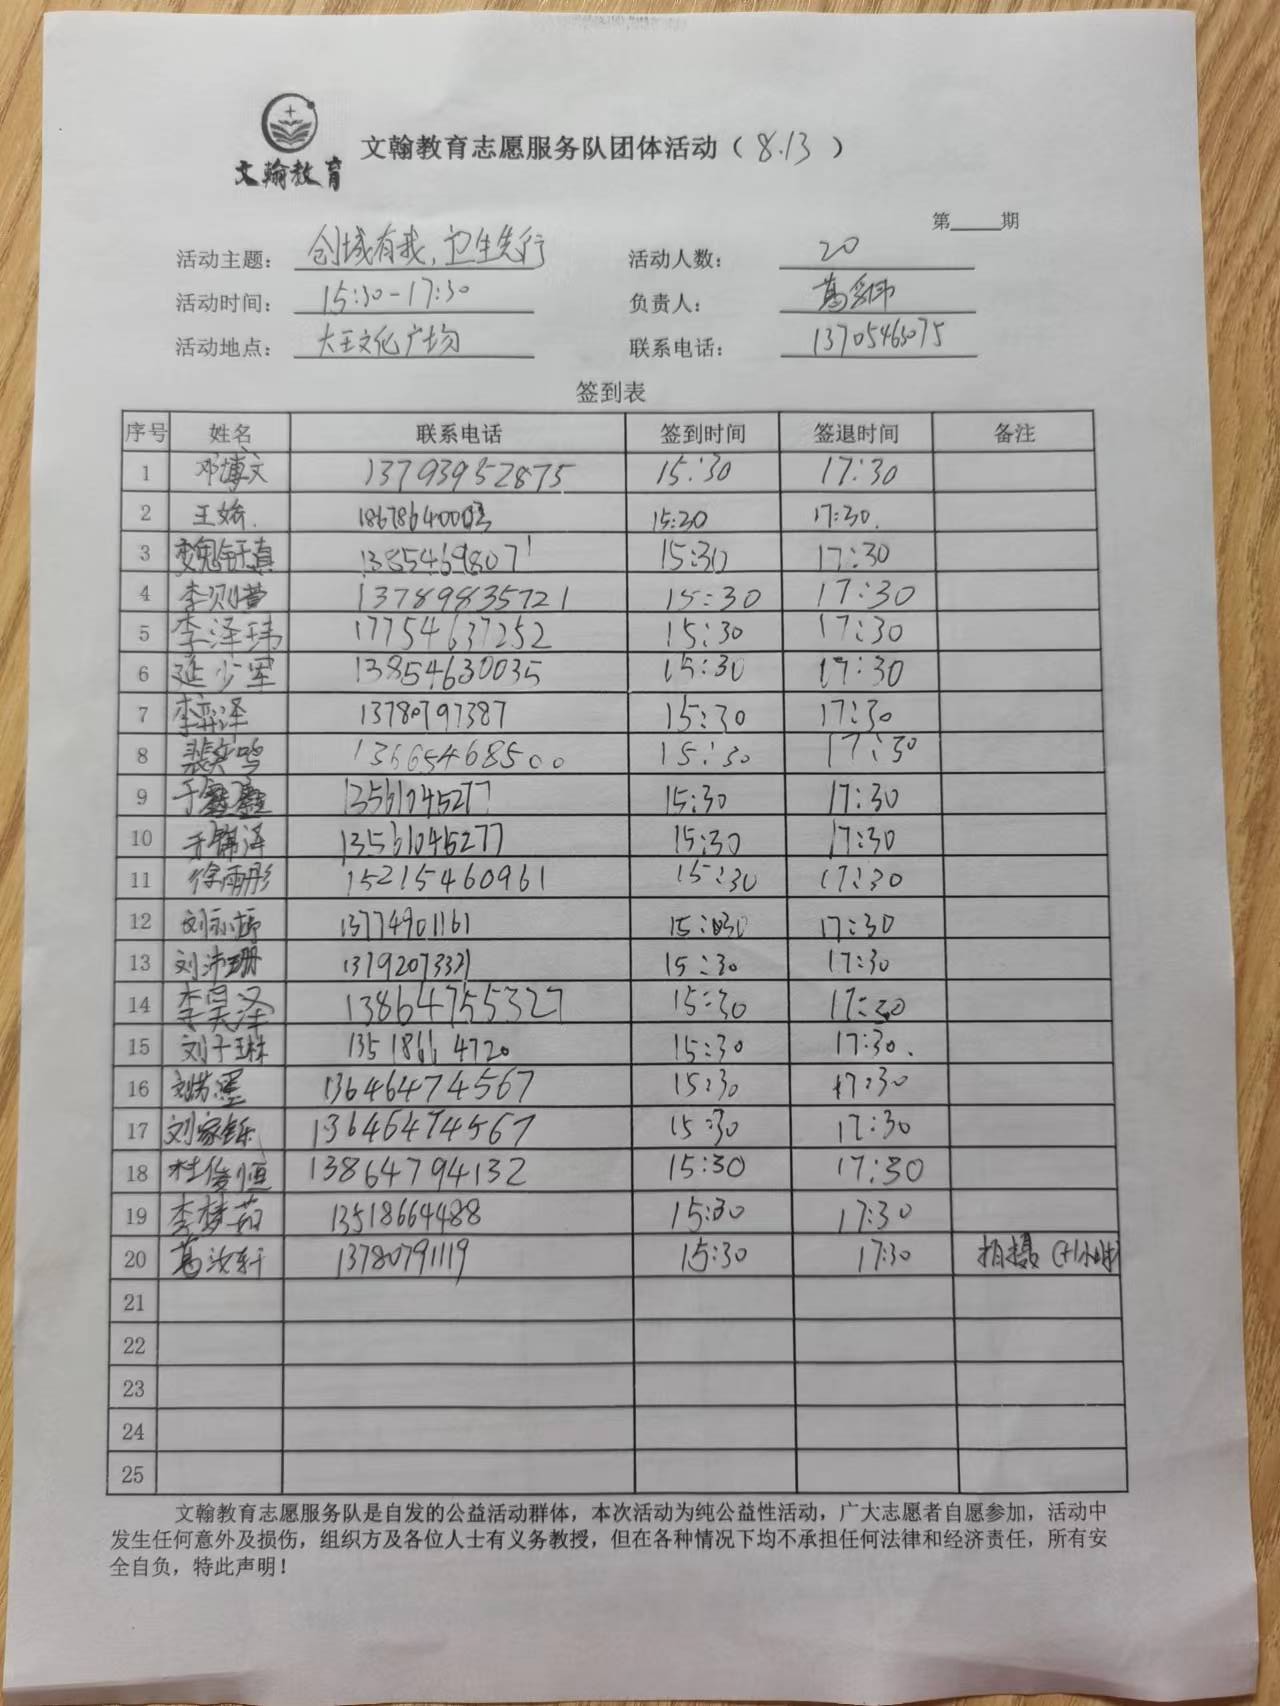 文翰教育
文翰教育志愿服务队团体活动（8.13）
第____期
活动主题：创城有我，卫生先行 活动人数：20
活动时间：15:30-17:30 负责人：
活动地点：大王文化广场 联系电话：13705465075
签到表
序号 姓名 联系电话 签到时间 签退时间 备注
1 邓博文 13793952875 15:30 17:30
2 王 15:30 17:30
3 魏钰真 13854698071 15:30 17:30
4 李 13789835721 15:30 17:30
5 李泽玮 17754637252 15:30 17:30
6 延少军 13854630035 15:30 17:30
7 李弈泽 13780797387 15:30 17:30
8 裴 13665468500 15:30 17:30
9 于鑫 13561045277 15:30 17:30
10 于锦泽 13561045277 15:30 17:30
11 徐雨彤 15215460961 15:30 17:30
12 刘 13774901161 15:30 17:30
13 刘沛珊 15:30 17:30
14 李昊泽 13864755327 15:30 17:30
15 刘子琳 13518664720 15:30 17:30
16 刘 13646474567 15:30 17:30
17 刘家铄 13646474567 15:30 17:30
18 杜俊恒 13864794132 15:30 17:30
19 李梦茹 13518664488 15:30 17:30
20 葛汝轩 13780791119 15:30 17:30 拍摄（+1小时
21
22
23
24
25
文翰教育志愿服务队是自发的公益活动群体，本次活动为纯公益性活动，广大志愿者自愿参加，活动中
发生任何意外及损伤，组织方及各位人士有义务教授，但在各种情况下均不承担任何法律和经济责任，所有安
全自负，特此声明！